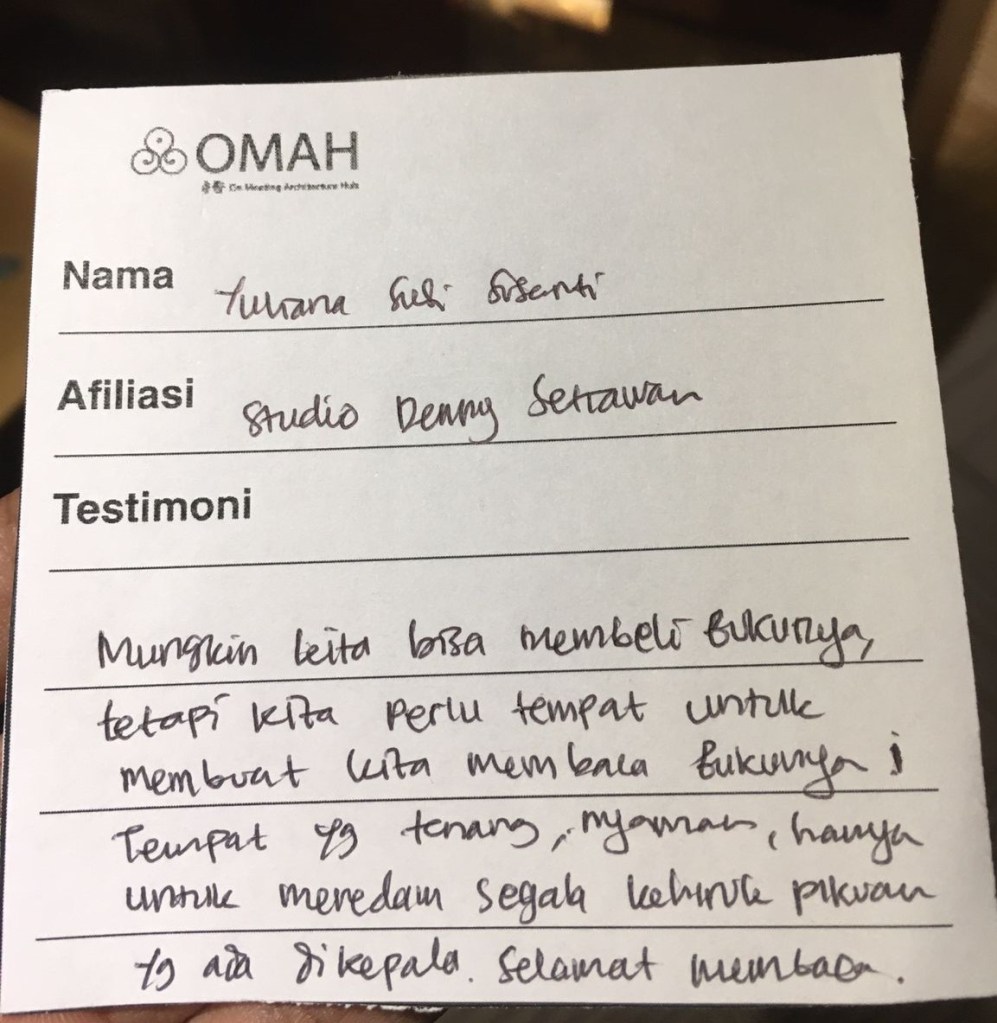 OMAH
On Meeting Architecture Hub
Nama Yuliana Susi Susanti
Afiliasi Studio Denny Setiawan
Testimoni
Mungkin kita bisa membeli bukunya,
tetapi kita perlu tempat untuk
membuat kita membaca bukunya ;
Tempat yg tenang, nyaman, hanya
untuk meredam segala pikuan
yg ada dikepala. Selamat membaca.